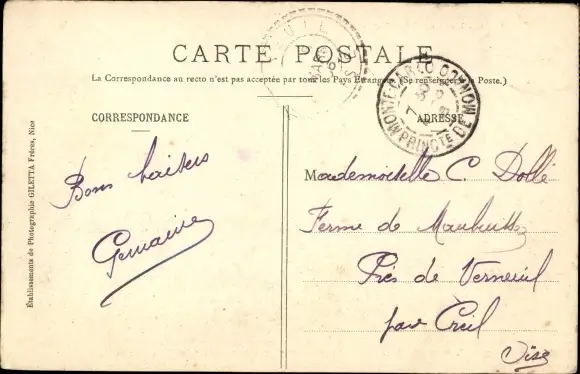 CARTE POSTALE
La Correspondance au recto n'est pas acceptée par tous les Pays Étrangers (Se renseigner à la Poste.)
CORRESPONDANCE
ADRESSE
Bons baisers
Germaine
Mademoiselle C. Dollé
Ferme de
Près de Verneuil
par Creil
Oise
Établissements de Photographie GILETTA Frères, Nice
MONTE-CARLO
PRINCTE DE MONACO